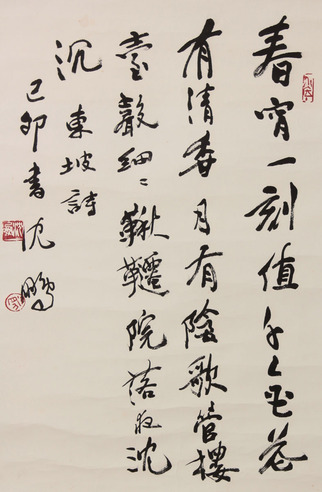 春宵一刻值千金花
有清香月有陰歌管樓
臺聲細〻鞦韆院落夜沈
沉 東坡詩
己卯書沈鵬